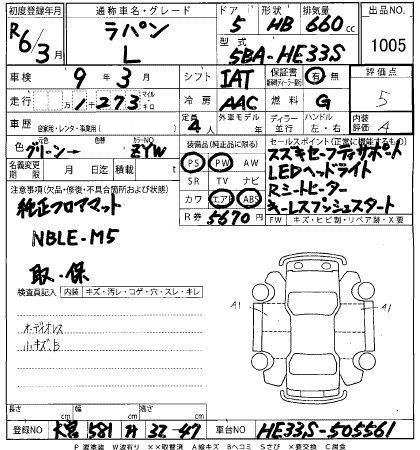 初度登録年月 通称車名・グレード ドア 形状 排気量 出品NO
R6/3月 ラパン L 5 HB 660cc 1005
型式 5BA-HE33S
車検 9年3月 シフト IAT 保証書 有 無 評価点 5
走行 1千273 マイル キロ 冷房 AAC 燃料 G 内装評価 A
車歴 自家用・レンタ・事業用( ) 定員 4人 外車モデル 年 ディーラー 並行 ハンドル 左・右
色 元色 グリーン→ 色替 カラーNO ZYW 装備品(純正品に限る) セールスポイント(正常に機能するもの)
PS PW AW スズキセーフティサポート
名義変更期限 月 日 積載 t SR TV ナビ LEDヘッドライト
注意事項(欠品・修復・不具合箇所および状態) カワ エアB ABS Rシートヒーター
純正フロアマット R券 5670円 キーレスプッシュスタート
FW キズ・ヒビ割・リペア跡・X要
NBLE-M5
取・保
検査員記入 内装 キズ・汚レ・コゲ・穴・スレ・キレ
A1 A1
オーディオレス
小キズ、B
長さ cm 幅 cm 高さ cm
登録NO 大宮 581 け 32-47 車台NO HE33S-505561
P 要塗装 W波有り ××取替済 A線キズ Bヘコミ Sさび ×要交換 C腐食